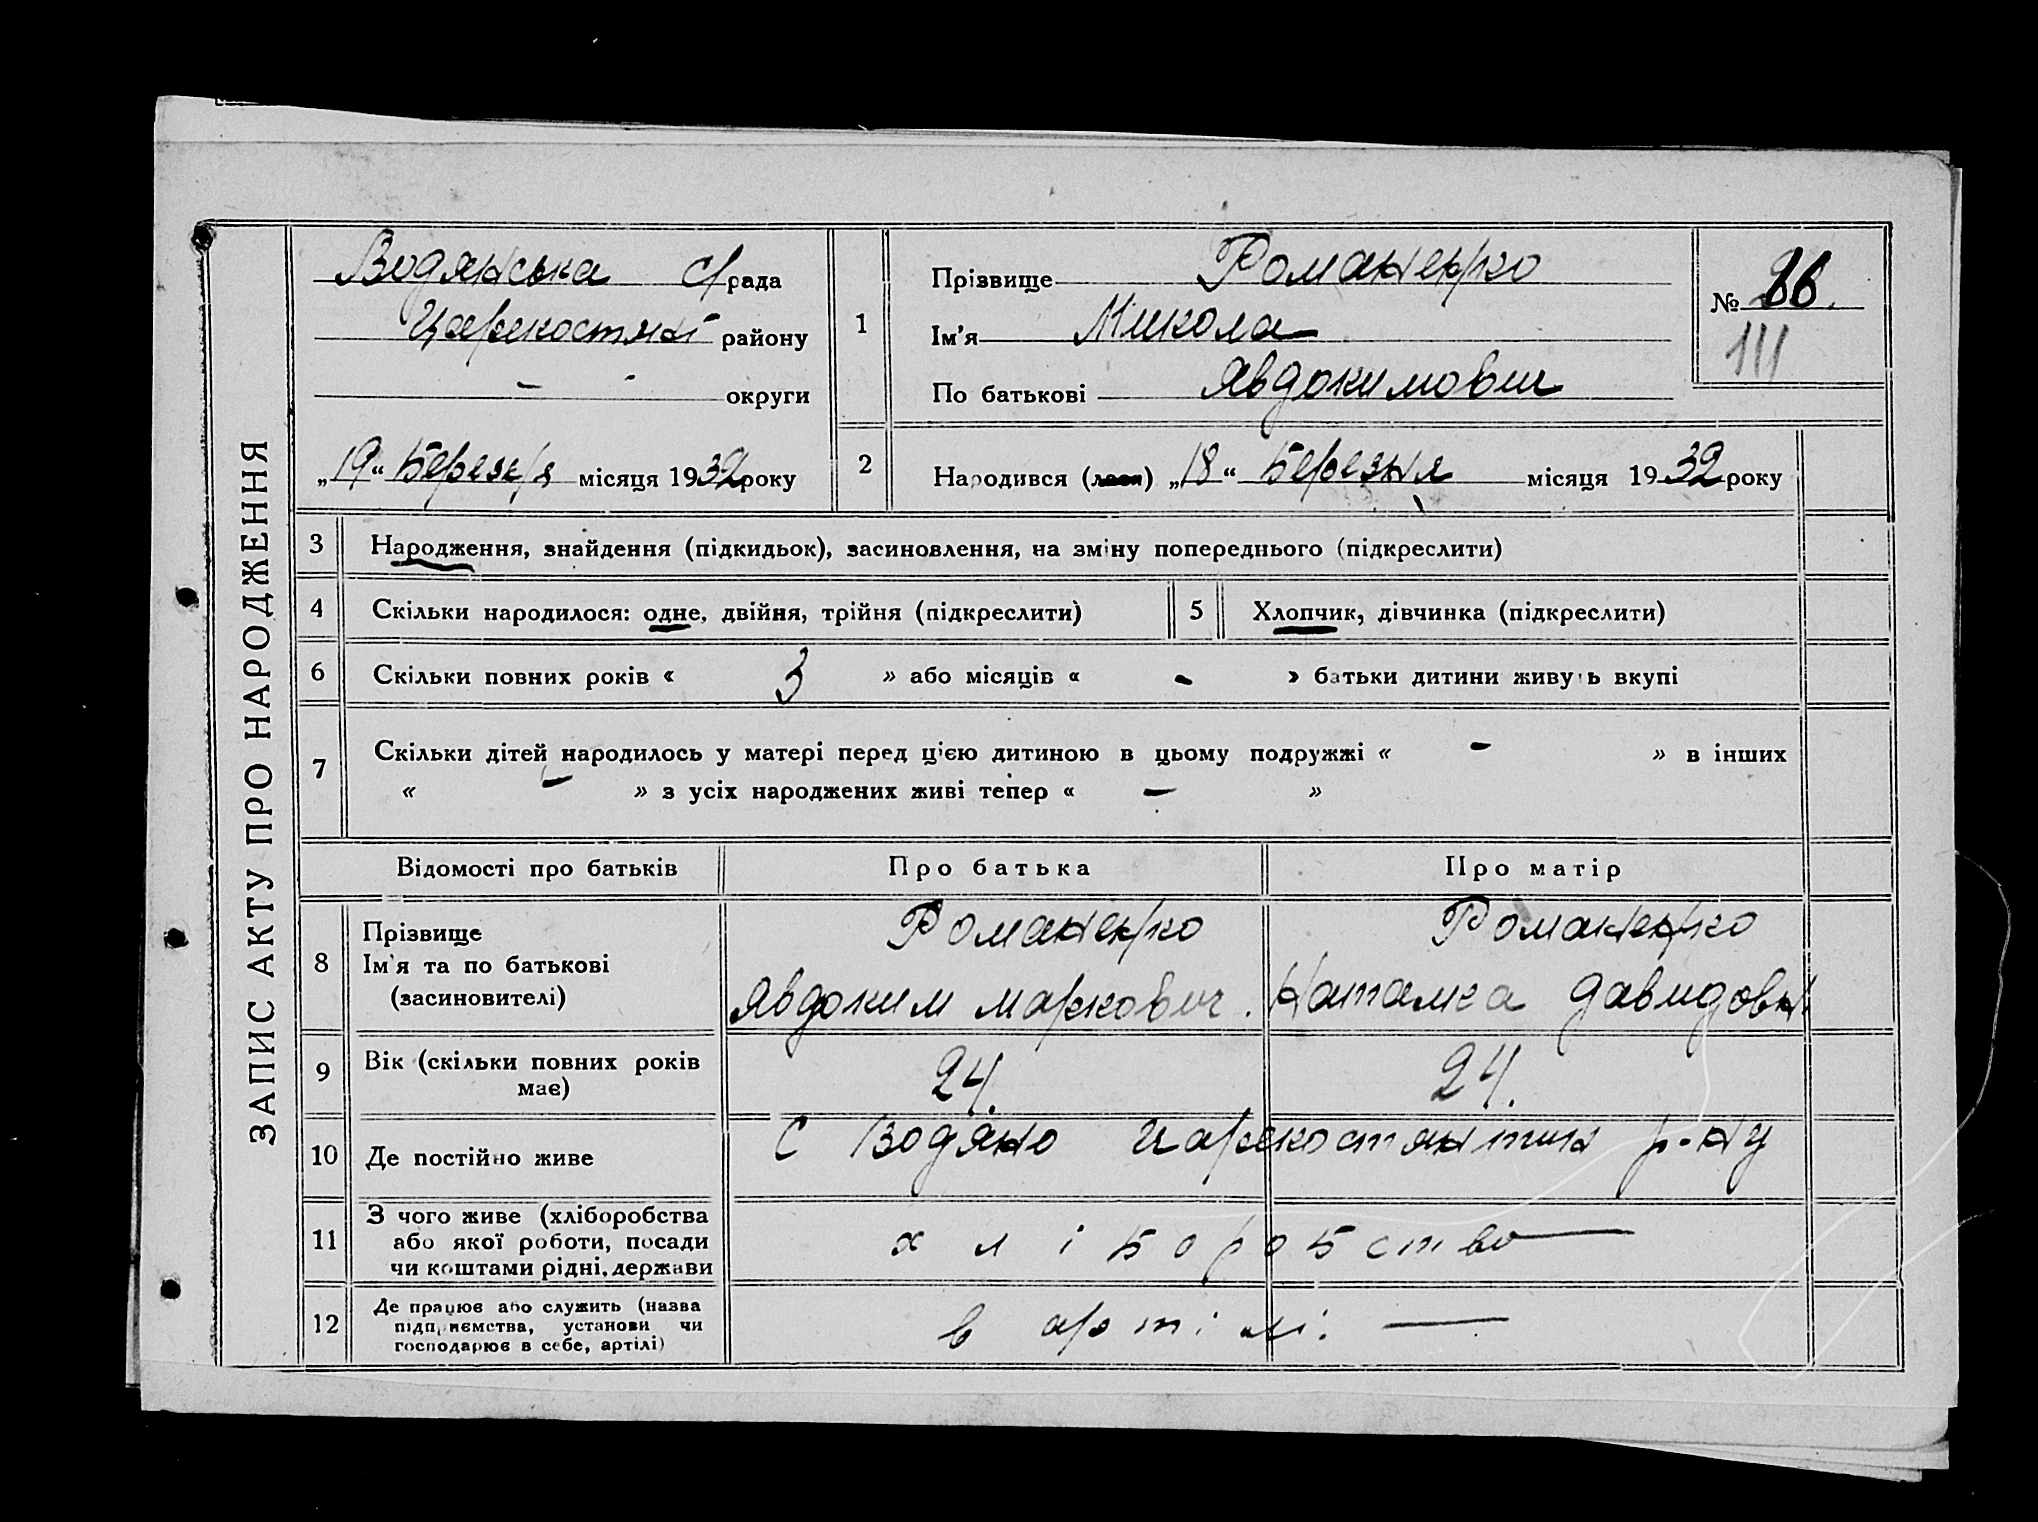 ЗАПИС АКТУ ПРО НАРОДЖЕННЯ
Водянська с/рада
району
- - округи
„19“ Березня місяця 1932 року
1
Прізвище Романенко
Ім'я Микола
По батькові Явдокимович
№
111
2
Народився (лася) „18“ Березня місяця 1932 року
3 Народження, знайдення (підкидьок), засиновлення, на зміну попереднього (підкреслити)
4 Скільки народилося: одне, двійня, трійня (підкреслити)
5 Хлопчик, дівчинка (підкреслити)
6 Скільки повних років « 3 » або місяців « - » батьки дитини живуть вкупі
7 Скільки дітей народилось у матері перед цією дитиною в цьому подружжі « - » в інших
« - » з усіх народжених живі тепер « - »
Відомості про батьків Про батька Про матір
8
Прізвище
Ім'я та по батькові
(засиновителі)
Романенко
Явдоким Маркович.
Романенко
Наталка Давидовн.
9
Вік (скільки повних років
має)
24. 24.
10 Де постійно живе
с Водяно р-ну
11
З чого живе (хліборобства
або якої роботи, посади
чи коштами рідні, держави
хліборобство —
12
Де працює або служить (назва
підприємства, установи чи
господарює в себе, артілі)
в артілі. —